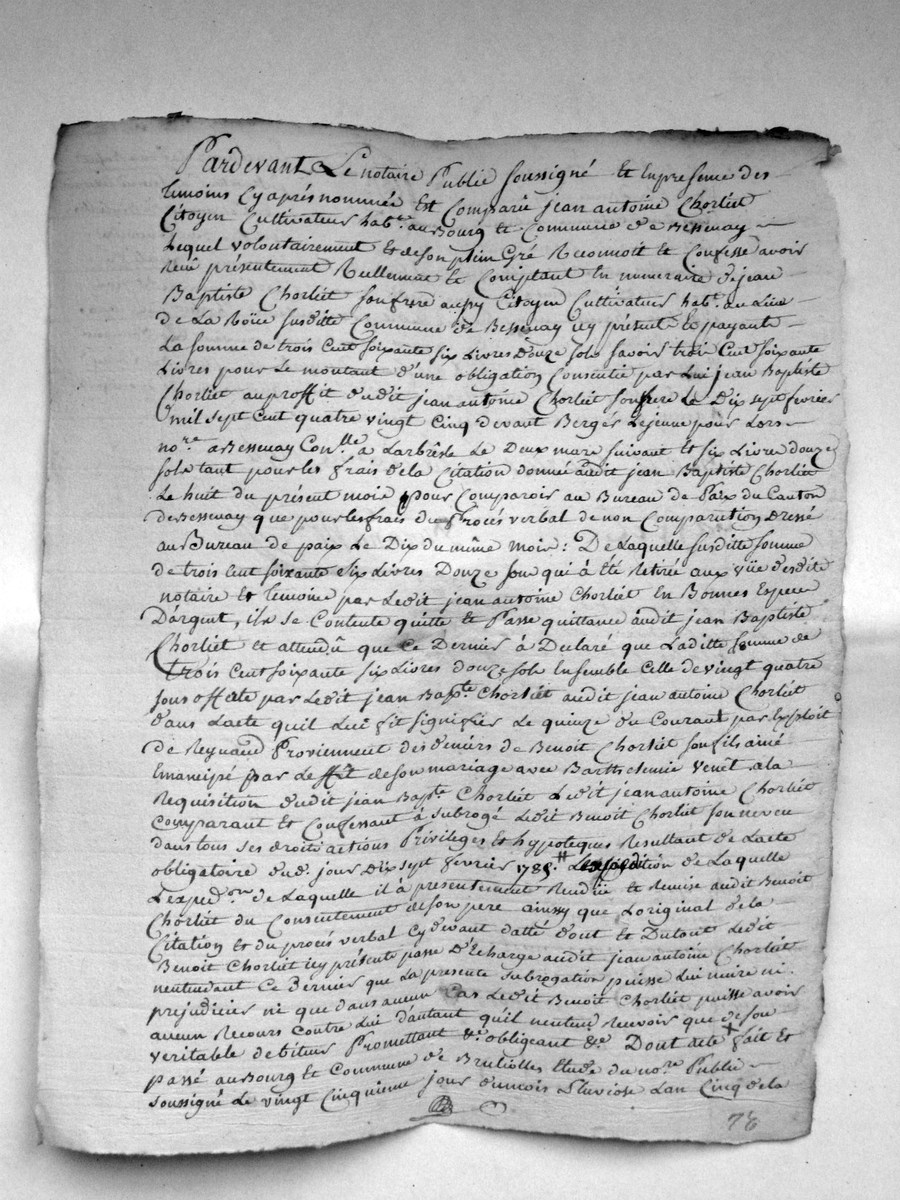 Pardevant Le notaire Public Soussigné et En presence des
temoins Cy après nommés Est Comparu jean antoine Chorliet
Citoyen Cultivateur habt. au Bourg et Commune de Bessenay
Lequel volontairement et de son plein Gré Reconnoit et Confesse avoir
Reçu présentement Reellement et Comptant En numeraire de jean
Baptiste Chorliet son frere aussy Citoyen Cultivateur habt. au Lieu
de La Roüe susditte Commune de Bessenay icy présent et payant
La somme de trois Cent soixante six Livres Douze sols savoir trois Cent soixante
Livres pour Le montant d'une obligation Consentie par Lui jean Baptiste
Chorliet au proffit dudit jean antoine Chorliet son frere Le Dix sept fevrier
mil sept cent quatre vingt Cinq devant Berger Lejeune pour Lors
nore. a Bessenay Conllé. à Larbresle Le Deux mars suivant et six Livres douze
sols tant pour les frais de la Citation donnée audit jean Baptiste Chorliet
Le huit du présent mois pour Comparoir au Bureau de Paix du Canton
de Bessenay que pour les frais du Procès verbal de non Comparution Dressé
au Bureau de paix Le Dix du même mois : De Laquelle susditte somme
de trois Cent soixante six Livres Douze sous qui à été Retirée aux vüe desdits
notaire et temoins par Ledit jean antoine Chorliet En Bonnes Especes
D'argent, il se Contente quitte et Passe quittance audit jean Baptiste
Chorliet et attendû que Ce Dernier à Declaré que Laditte somme de
trois Cent soixante six Livres douze sols Ensemble Celle de vingt quatre
sous offerte par Ledit jean Bapte. Chorliet audit jean antoine Chorliet
dans Lacte quil Lui fit signifier Le quinze du Courant par Exploit
de Reynaud Proviennent des deniers de Benoit Chorliet son fils ainé
Emancipé par Le fait de son mariage avec Barthelemie Venêt a la
Requisition dudit jean Bapte. Chorliet Ledit jean antoine Chorliet
Comparant et Confessant à subrogé Ledit Benoit Chorliet son neveu
dans tous ses droits actions Privileges et hypoteques Resultant de Lacte
obligatoire dud. jour Dix sept fevrier 1785. # de Laquelle
Lexpedon. de Laquelle il à présentement Rendüe et Remise audit Benoit
Chorliet du Consentement de son pere ainssy que Loriginal de la
Citation et du procès verbal Cy devant datté dont et Dutout Ledit
Benoit Chorliet icy présent passe D'Echarge audit jean antoine Chorliet
nentendant Ce Dernier que La presente subrogation puisse Lui nuire ni
prejudicier ni que dans aucun Cas Ledit Benoit Chorliet puisse avoir
aucun Recours Contre Lui dautant quil nentend Recevoir que de son
veritable debiteur Promettant &c. obligeant &c. Dont acte + fait et
passé au Bourg et Commune de Brulliolles Etude du nore. Public
soussigné Le vingt Cinquieme jour du mois Pluviose Lan Cinq de la
78